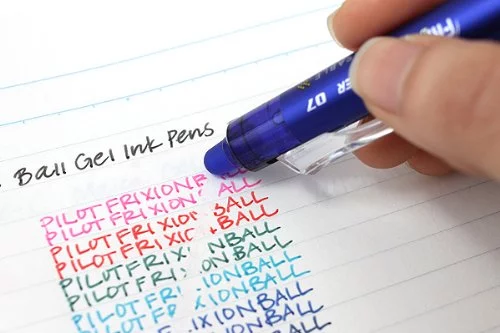 Ball Gel Ink Pens
PILOT FRIXIONB
PILOT FRIXION ALL
PILOT FRIXIO BALL
PILOT FRIXIO BALL
PILOT FRIXI NBALL
PILOT FRIX ONBALL
PILOT FRI IONBALL
PILOT FR IONBALL
PILOT F IXIONBALL
XIONBALL
07